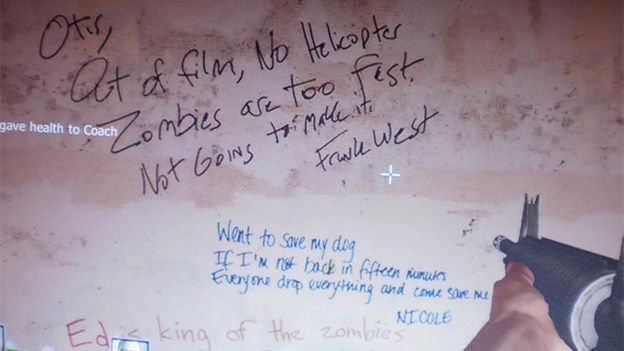 Otis,
Out of film, No Helicopter
Zombies are too fast.
Not Going to make it.
Frank West
gave health to Coach
Went to save my dog
If I'm not back in fifteen minutes
Everyone drop everything and come save me
NICOLE
Ed is king of the zombies